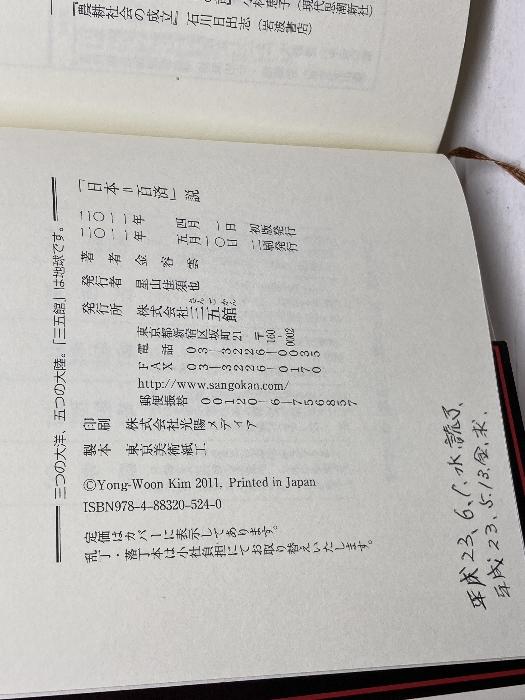 『農耕社会の成立』石川日出志(岩波書店)
「日本=百済」説
二〇一一年 四月 一日 初版発行
二〇一一年 五月一〇日 二刷発行
著者 金容雲
発行者 星山佳須也
発行所 株式会社三五館
さんごかん
東京都新宿区坂町21 〒160-0002
電話 03-3226-0035
FAX 03-3226-0170
http://www.sangokan.com/
郵便振替 00120-6-756857
印刷 株式会社光陽メディア
製本 東京美術紙工
©Yong-Woon Kim 2011, Printed in Japan
ISBN978-4-88320-524-0
定価はカバーに表示してあります。
乱丁・落丁本は小社負担にてお取り替えいたします。
三つの大洋、五つの大陸。「三五館」は地球です。
平成23、6、1、水、読了、
平成23、5、13、金、求、